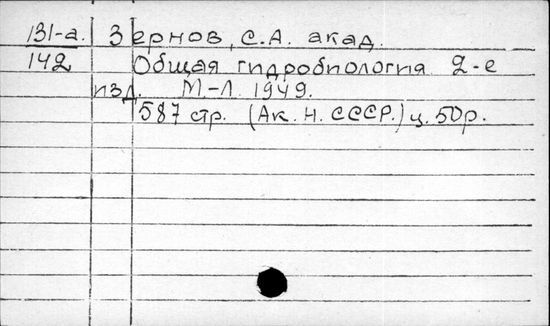 131-а. Зернов, С.А. акад.
142 Общая гидробиология 2-е
изд. М-Л. 1949.
587 стр. (Ак. Н. СССР.) ц. 50р.